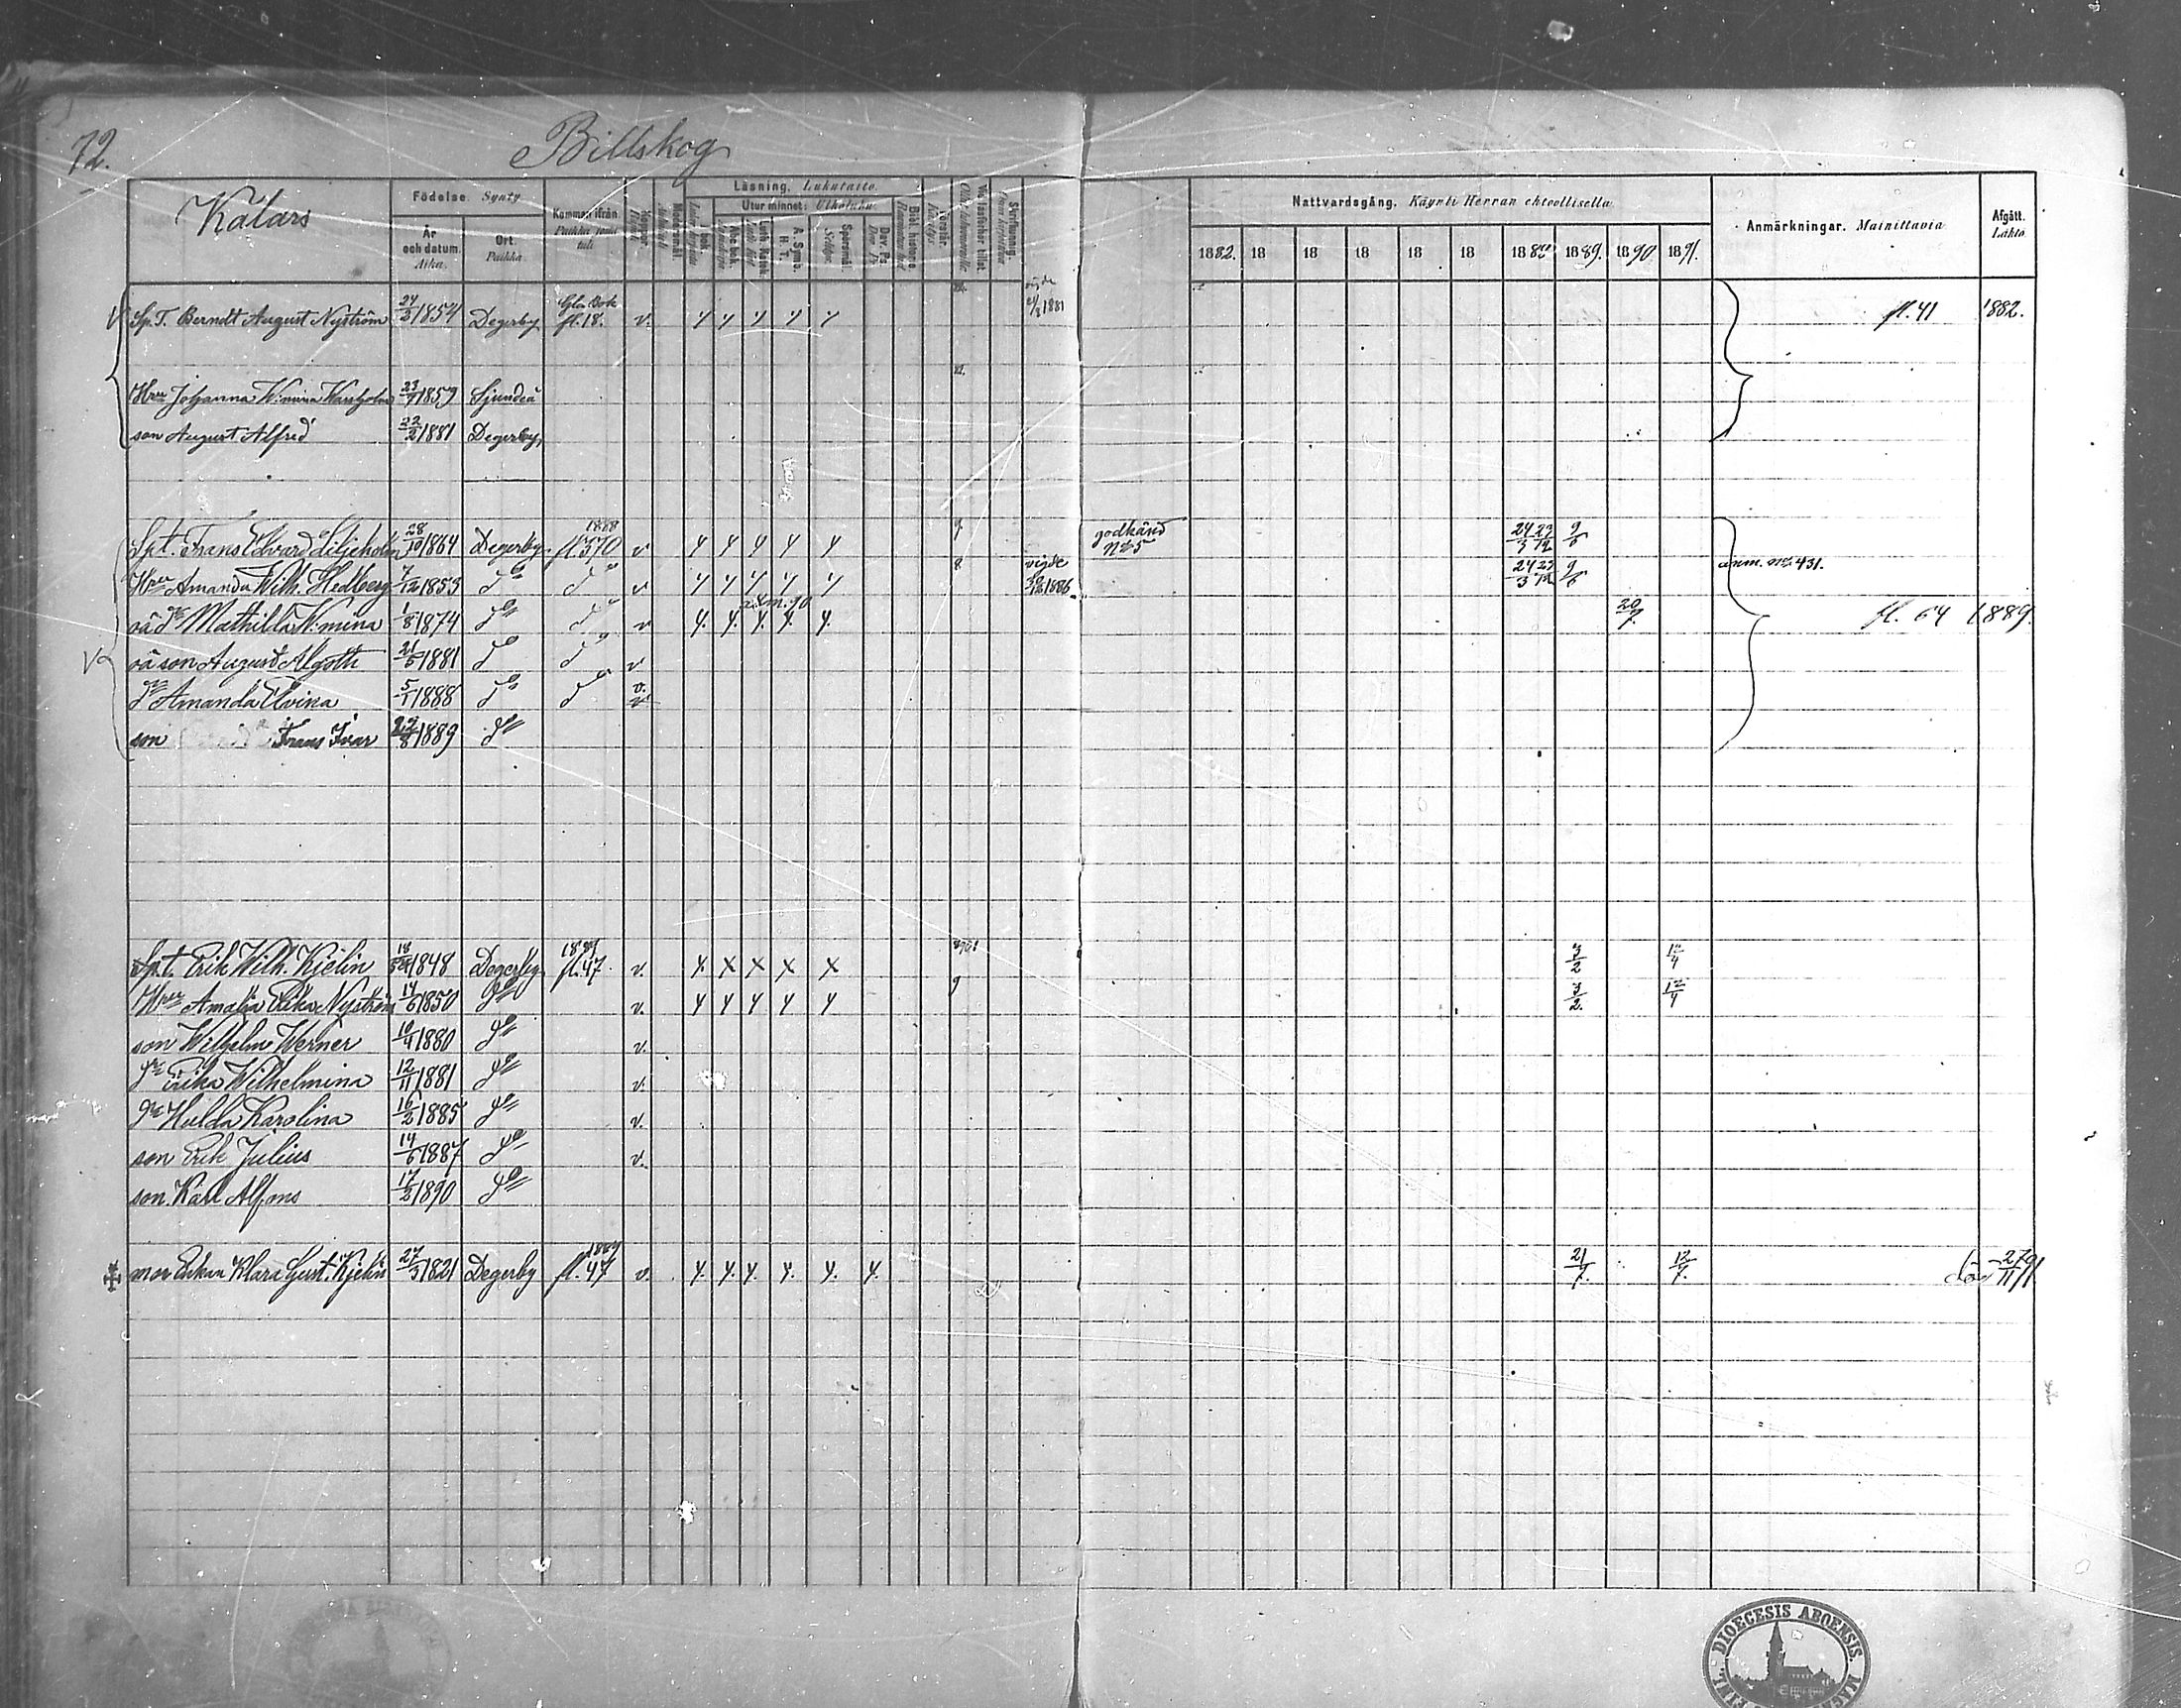 72.
Billskog
Kalars
Födelse. Synty
År och datum. Aika.
Ort. Paikka.
Kommen ifrån. Paikka josta tuli
Läsning. Lukutaito.
Utur minnet: Ulkoluku.
Nattvardsgång. Käynti Herran ehtoollisella
1882. 18 18 18 18 18 1888 1889. 1890 1891.
Anmärkningar. Mainittavia
Afgått. Lähtö
Sp. T. Berndt August Nyström 24/3 1854 Degerby fl. 18. v. vigde 1881 fl. 41 1882.
Hru Johanna W:mina 23/7 1859 Sjundeå
son August Alfred 22/2 1881 Degerby
Spt. Frans Edvard Liljeholm 28/10 1864 Degerby 1888 fl. 370 v godkänd N:o 5 24/3 23/12 9/6
Hru Amanda Wilh. Hedberg 7/12 1853 do do v 8. vigde 1886 24/3 23/12 9/6 anm. N:o 431.
oä dr Mathilda W:mina 1/8 1874 do do v 20/7 fl. 64 1889.
oä son August Algoth 21/5 1881 do do v
dr Amanda Elvina 5/1 1888 do do v.
son Frans Ivar 22/8 1889 do
Spt. Erik Wilh. Kjelin 1848 Degerby 1889 fl. 47. v. x x x x x 3/2 12/4
Hru Amalia Erika Nyström 14/6 1850 do v. 9 3/2. 12/4
son Wilhelm Werner 10/4 1880 do v.
dr Erika Wilhelmina 12/11 1881 do v.
dr Hulda Karolina 16/2 1885 do v.
son Erik Julius 14/6 1887 do v.
son Karl Alfons 17/2 1890 do
mor Enkan Klara Gust. Kjelin 27/3 1821 Degerby 1889 fl. 47 v. 21/7. 12/7. död 27/11 91.
DIOECESIS ABOENSIS